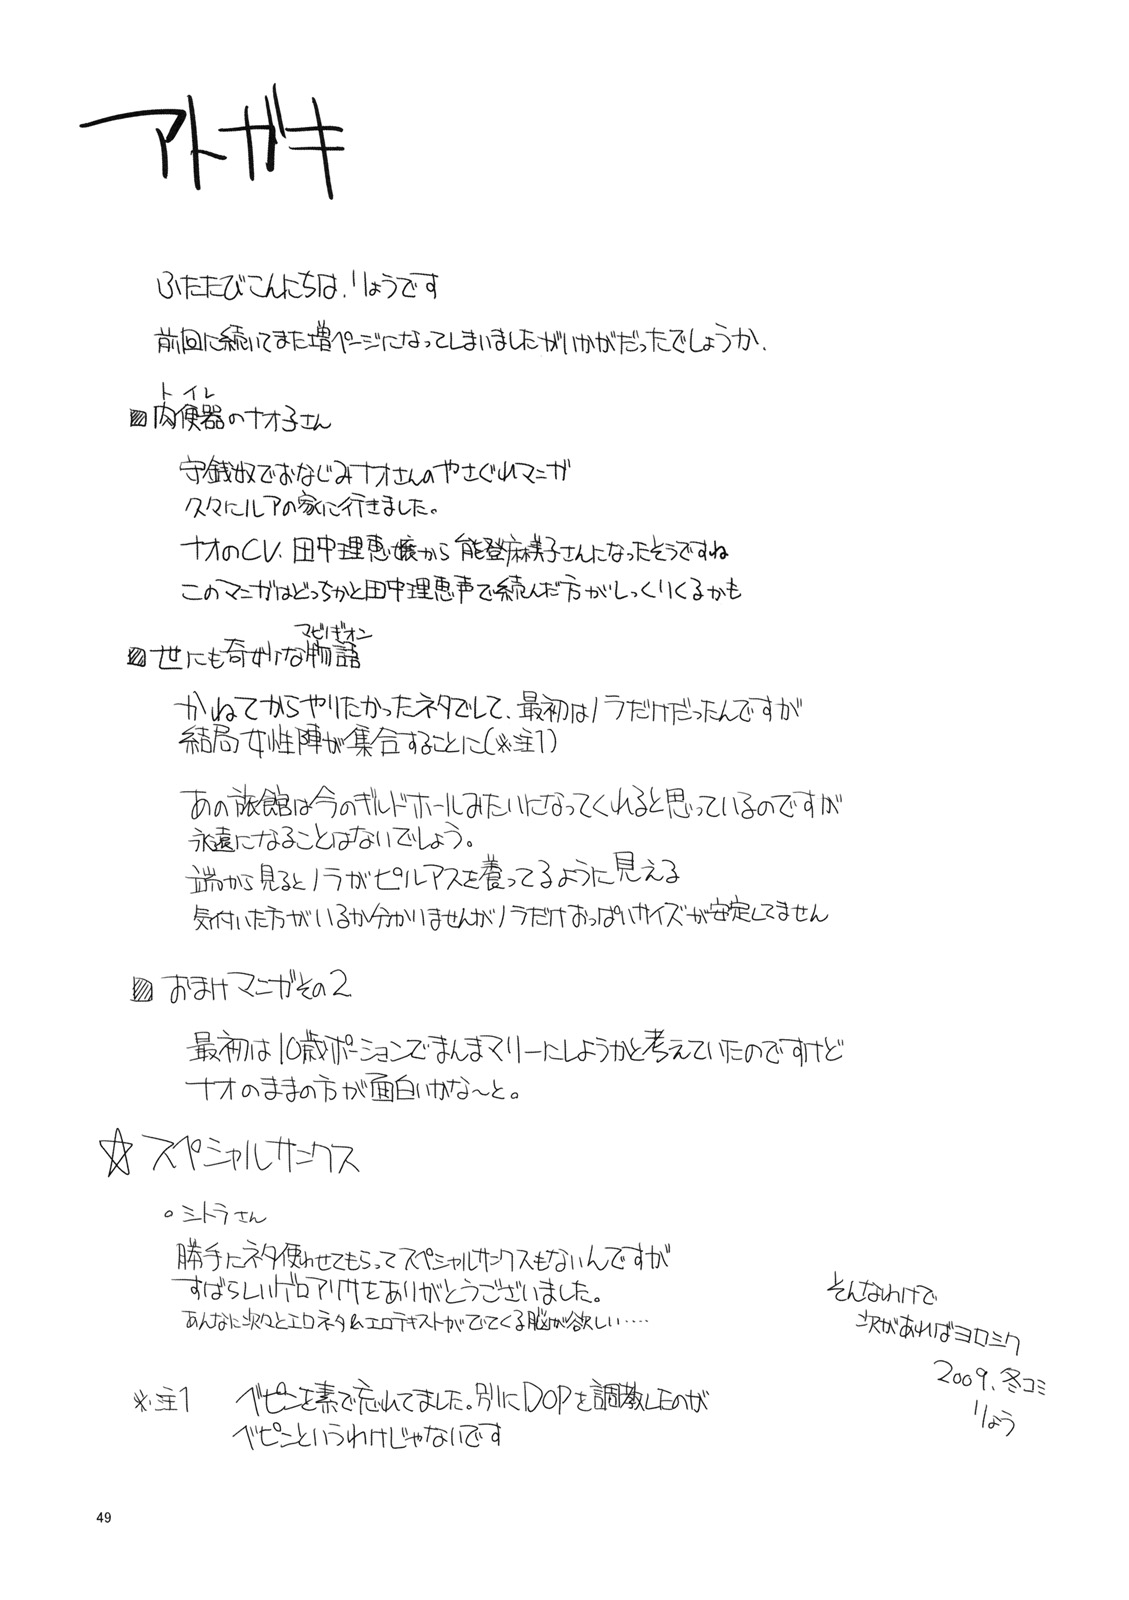 アトガキ
ふたたびこんにちは、りょうです
前回に続いてまた増ページになってしまいましたがいかがだったでしょうか、
トイレ
肉便器のナオ子さん
守銭奴でおなじみナオさんのやさぐれマンガ
久々にルアの家に行きました。
ナオのCV、田中理恵嬢から能登麻美子さんになったそうですね
このマンガはどっちかと田中理恵声で読んだ方がしっくりくるかも
マビノギオン
世にも奇妙な物語
かねてからやりたかったネタでして、最初はノラだけだったんですが
結局女性陣が集合することに(※注1)
あの旅館は今のギルドホールみたいになってくれると思っているのですが
永遠になることはないでしょう。
端から見るとノラがピルアスを養ってるように見える
気付いた方がいるか分かりませんがノラだけおっぱいサイズが安定してません
おまけマンガその2
最初は10歳ポーションでまんまマリーにしようかと考えていたのですけど
ナオのままの方が面白いかな〜と。
☆スペシャルサンクス
○ミトラさん
勝手にネタ使わせてもらってスペシャルサンクスもないんですが
すばらしいゲロアリサをありがとうございました。
あんなに次々とエロネタ&エロテキストがでてくる脳が欲しい‥‥
※注1 ベピンを素で忘れてました。別にDOPを調教したのが
ベピンというわけじゃないです
そんなわけで
次があればヨロシク
2009、冬コミ
りょう
49